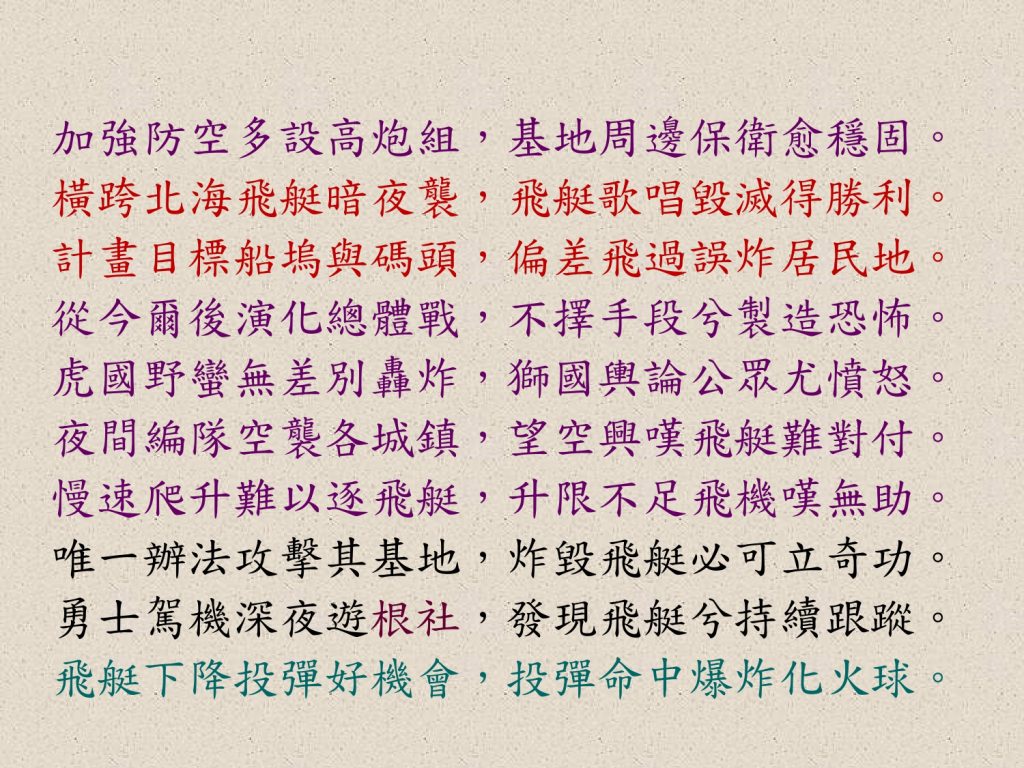 加強防空多設高炮組，基地周邊保衛愈穩固。
橫跨北海飛艇暗夜襲，飛艇歌唱毀滅得勝利。
計畫目標船塢與碼頭，偏差飛過誤炸居民地。
從今爾後演化總體戰，不擇手段兮製造恐怖。
虎國野蠻無差別轟炸，獅國輿論公眾尤憤怒。
夜間編隊空襲各城鎮，望空興嘆飛艇難對付。
慢速爬升難以逐飛艇，升限不足飛機嘆無助。
唯一辦法攻擊其基地，炸毀飛艇必可立奇功。
勇士駕機深夜遊根社，發現飛艇兮持續跟蹤。
飛艇下降投彈好機會，投彈命中爆炸化火球。